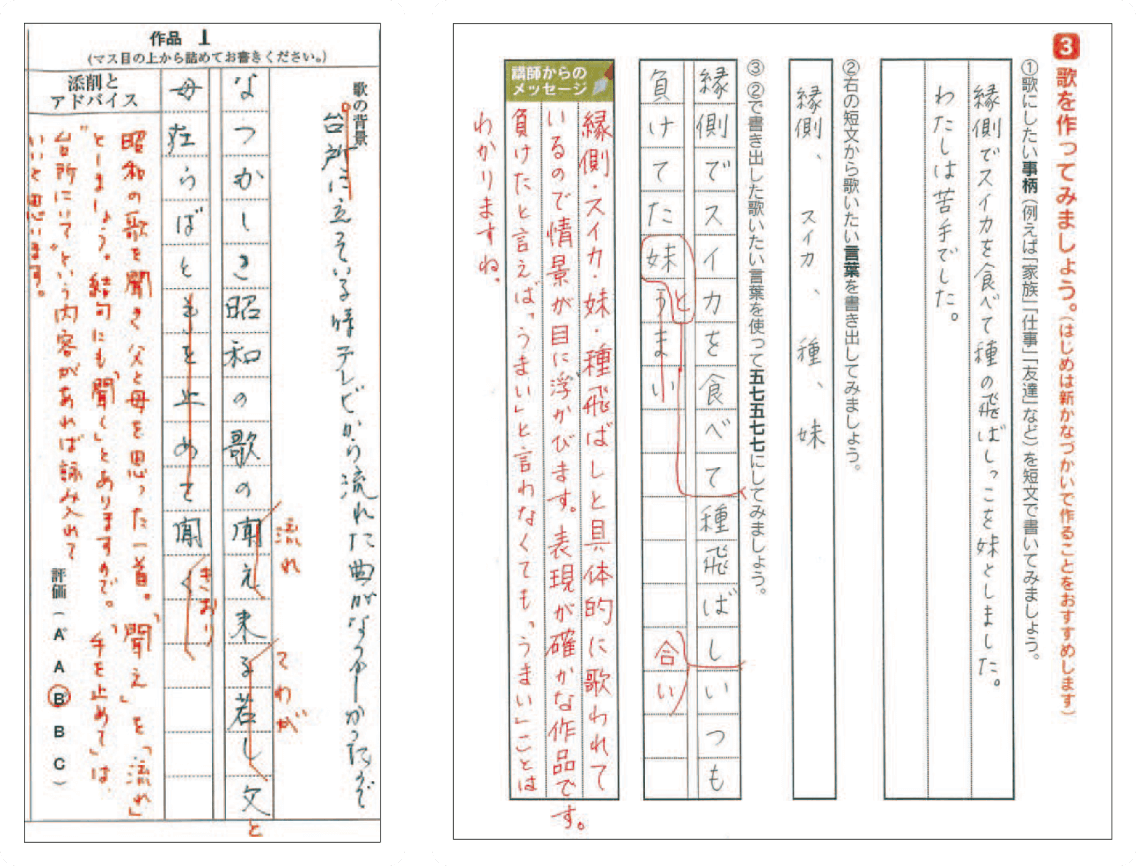 作品 1
(マス目の上から詰めてお書きください。)
歌の背景
台所に立っている時テレビから流れた曲がなつかしかったので
なつかしき昭和の歌の聞え来る若し父
流れ
てわが
と
母在らばと手を止めて聞く
きおり
添削と
アドバイス
昭和の歌を聞き父と母を思った一首。「聞え」を「流れ」
としましょう。結句にも「聞く」とありますので。「手を止めて」は、
"台所にいて"という内容があれば詠み入れて
いいと思います。
評価(A A B B C)
3 歌を作ってみましょう。(はじめは新かなづかいで作ることをおすすめします)
①歌にしたい事柄(例えば「家族」「仕事」「友達」など)を短文で書いてみましょう。
縁側でスイカを食べて種の飛ばしっこを妹としました。
わたしは苦手でした。
②右の短文から歌いたい言葉を書き出してみましょう。
縁側、スイカ、種、妹
③②で書き出した歌いたい言葉を使って五七五七七にしてみましょう。
縁側でスイカを食べて種飛ばしいつも
負けてた妹うまい
と
合い
講師からの
メッセージ
縁側・スイカ・妹・種飛ばしと具体的に歌われて
いるので情景が目に浮かびます。表現が確かな作品です。
負けたと言えば「うまい」と言わなくても「うまい」ことは
わかりますね。